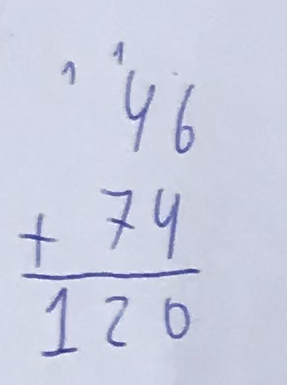 1 1
46
+ 74
120